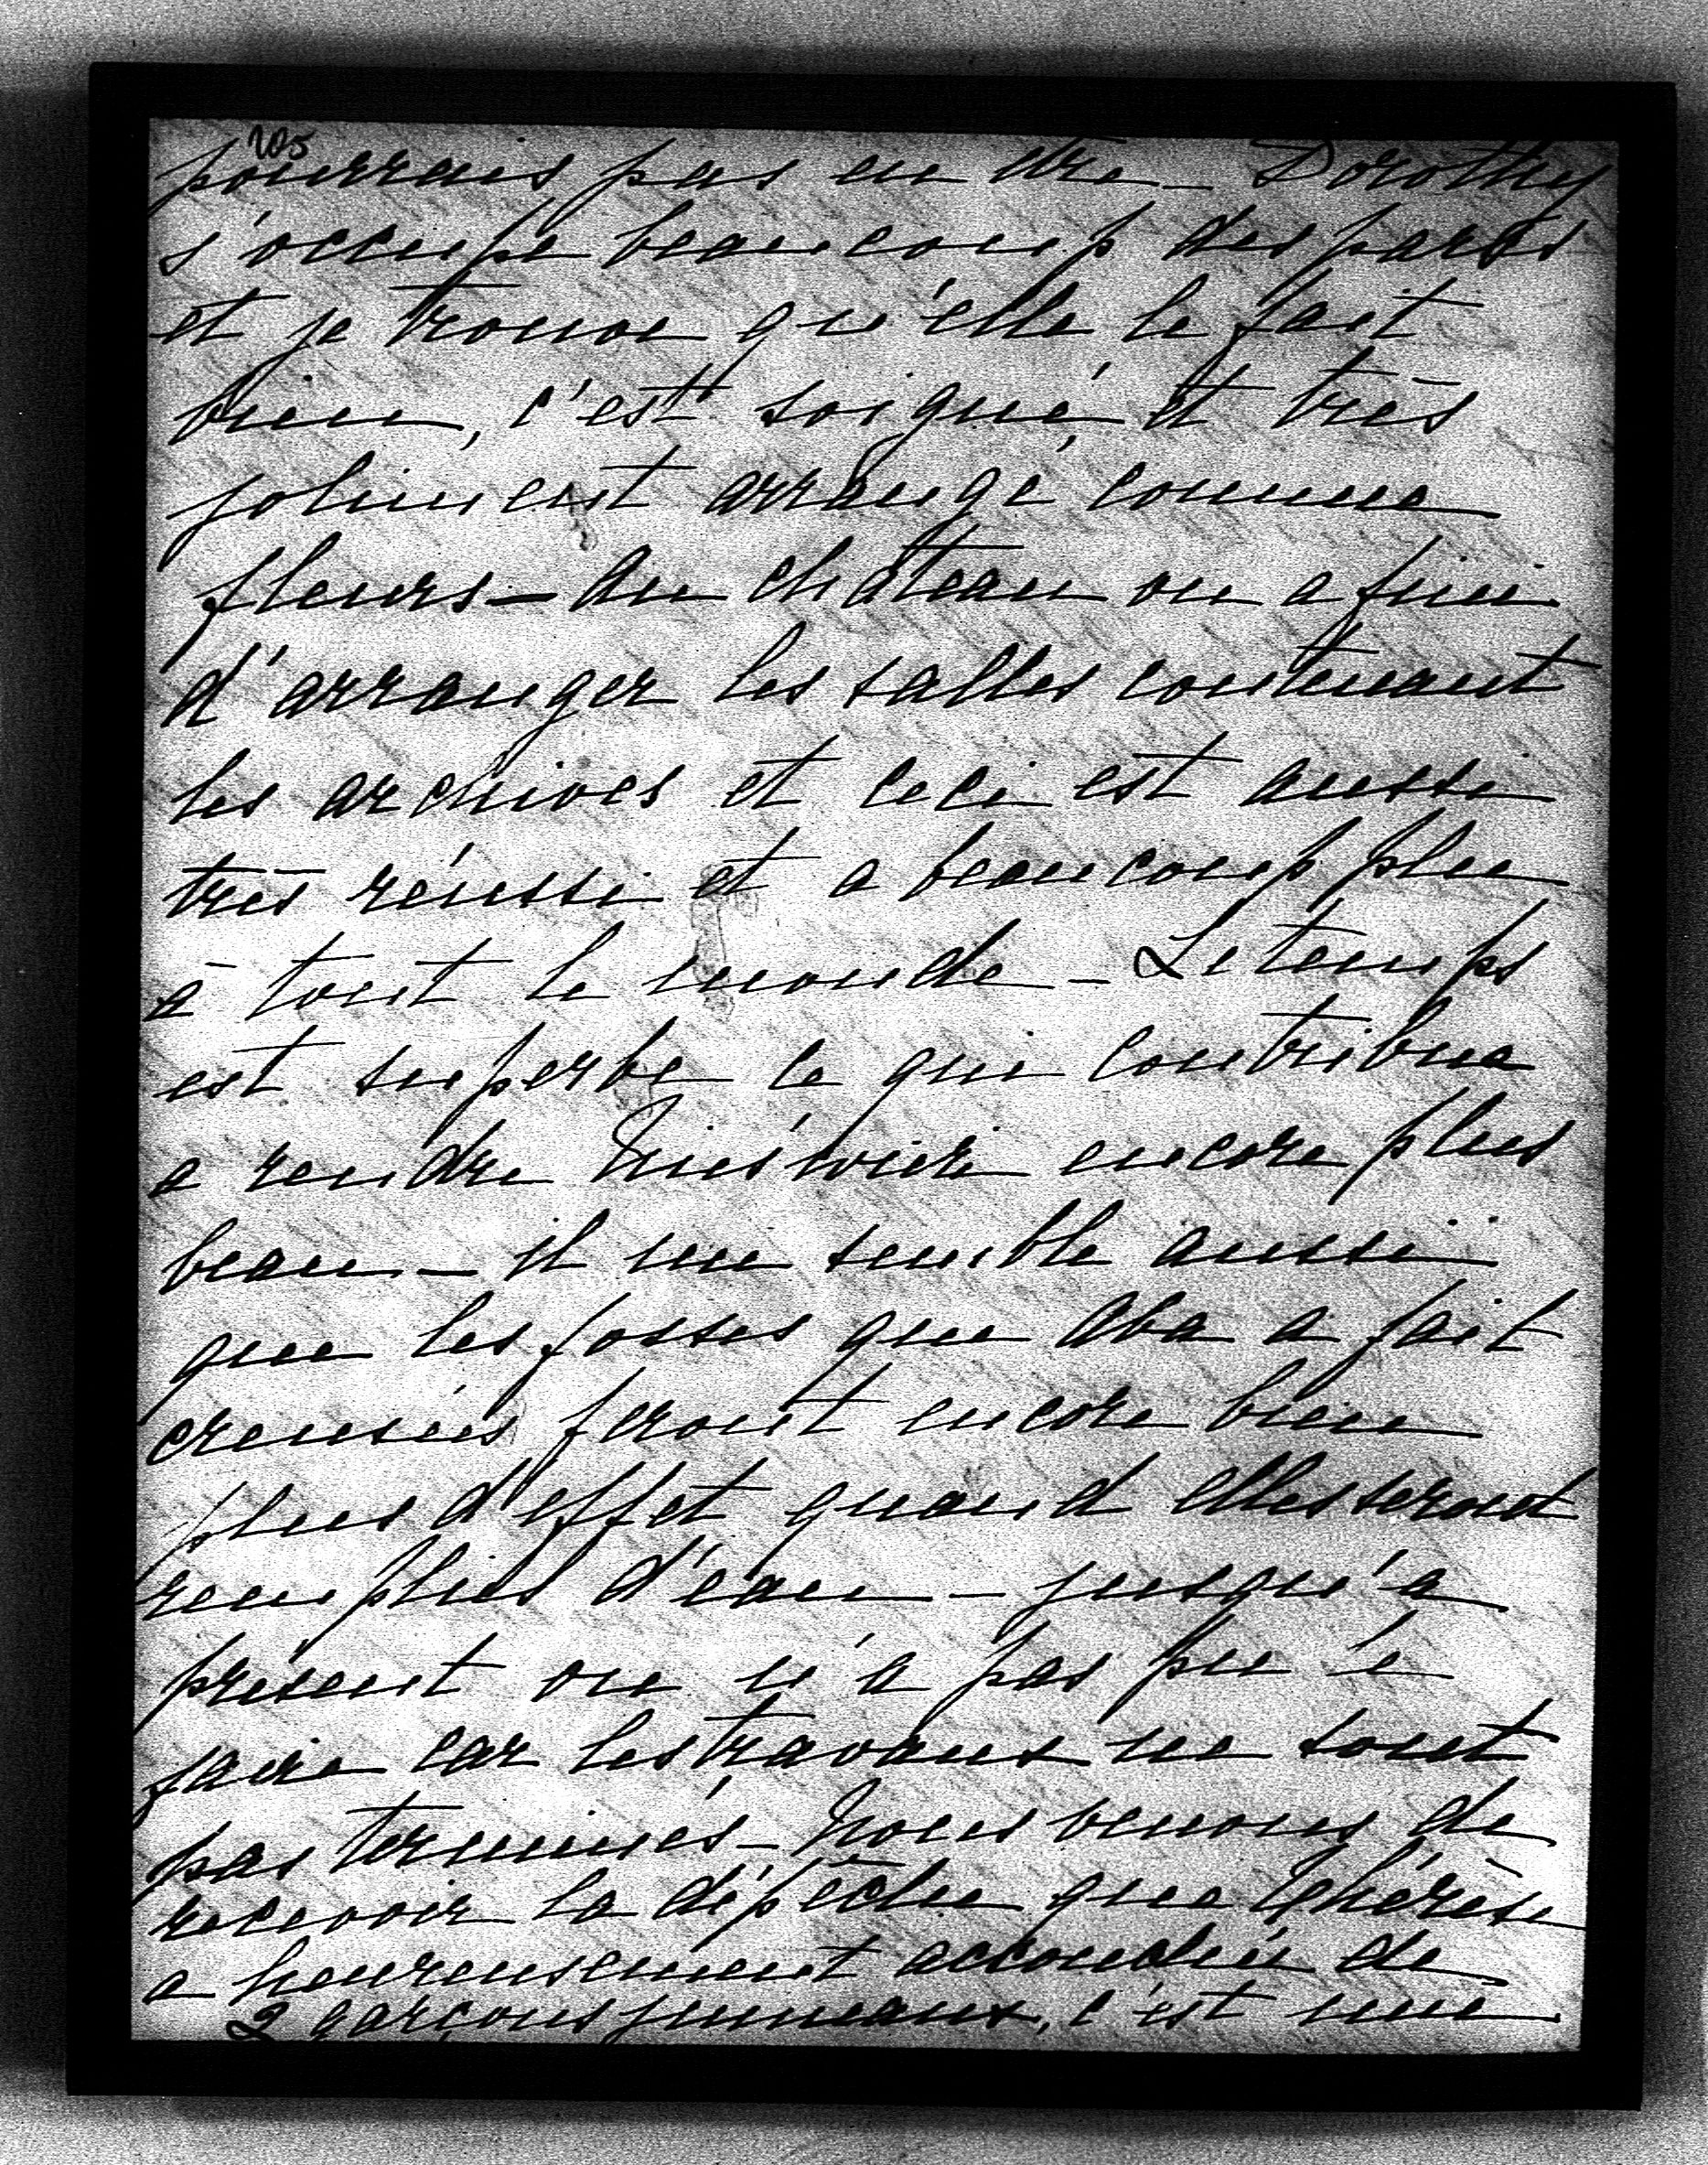 205
pourrais pas en dre – Dorothy
s'occupe beaucoup des parcs
et je trouve qu'elle le fait
bien, c'est soigné, et très
joliment arrangé comme
fleurs – Au château on a fini
d'arranger les salles contenant
les archives et ceci est aussi
très réussi et a beaucoup plu
à tout le monde – Le temps
est superbe ce qui contribue
a rendre Nieśwież encore plus
beau – il me semble aussi
que les fosses que Aba a fait
creusées feront encore bien
plus d'effet quand elles seront
remplies d'eau – jusqu'a
présent on n'a pas pu le
faire car les travaux ne sont
pas terminés – Nous venons de
recevoir la dépêche que Thérèse
a heureusement accouchée de
2 garçons jumeaux, c'est une